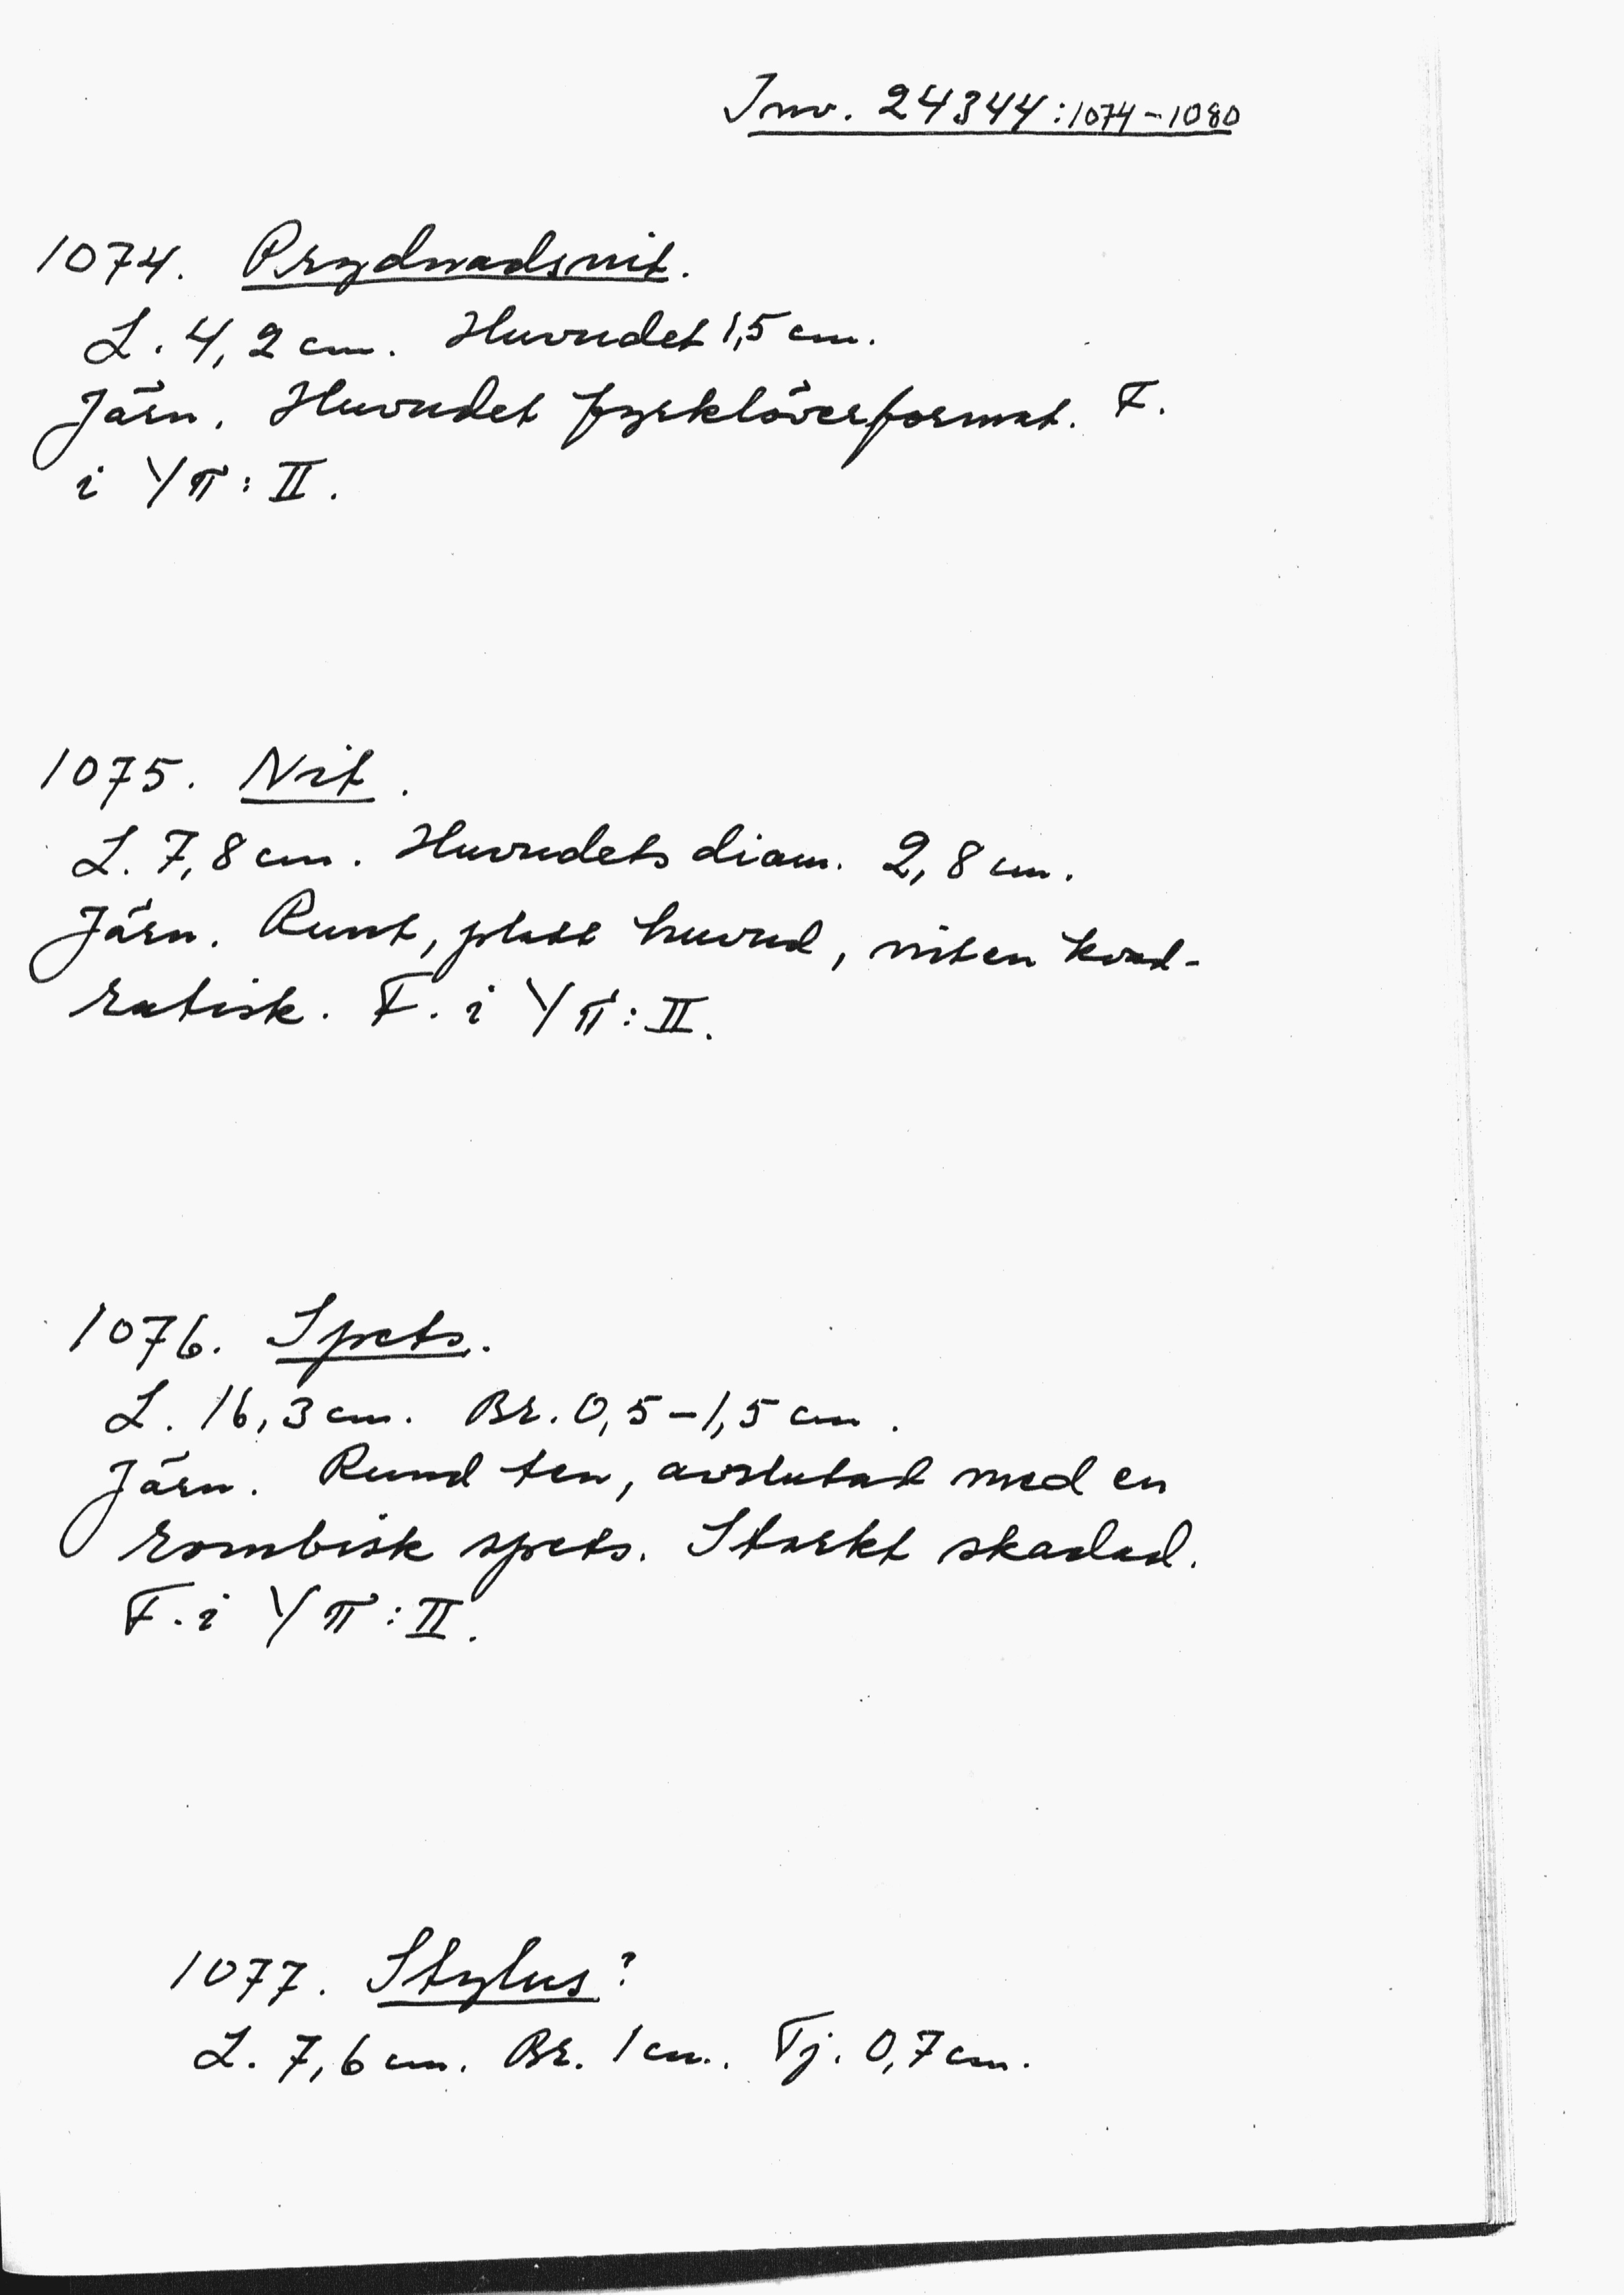 Inv. 24344:1074-1080
1074. Prydnadsnit.
L. 4,2 cm. Huvudet 1,5 cm.
Järn. Huvudet fyrklöverformat. F.
i Yπ: II.
1075. Nit.
L. 7,8 cm. Huvudets diam. 2,8 cm.
Järn. Runt, platt huvud, niten kvad-
ratisk. F. i Yπ: II.
1076. Spets.
L. 16,3 cm. Br. 0,5-1,5 cm.
Järn. Rund ten, avslutad med en
rombisk spets. Starkt skadad.
F. i Yπ: II.
1077. Stylus?
L. 7,6 cm. Br. 1 cm. Tj. 0,7 cm.